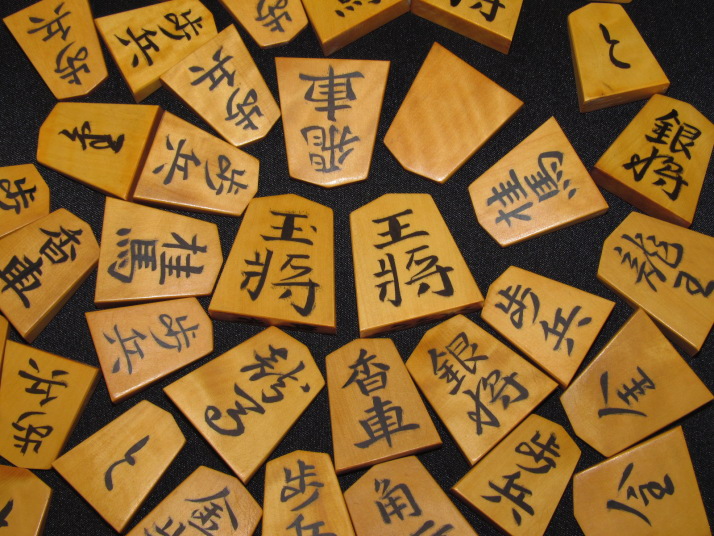 歩兵
歩兵
歩兵
飛車
と
銀将
歩兵
桂馬
香車
桂馬
玉将
王将
龍王
歩兵
歩兵
歩兵
龍馬
香車
銀将
と
歩兵
歩兵
角
金